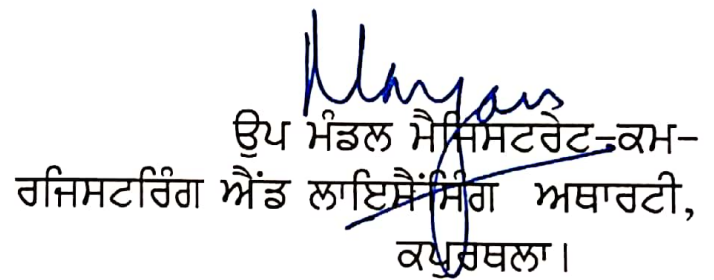 ਉਪ ਮੰਡਲ ਮੈਜਿਸਟਰੇਟ-ਕਮ-
ਰਜਿਸਟਰਿੰਗ ਐਂਡ ਲਾਇਸੈਂਸਿੰਗ ਅਥਾਰਟੀ,
ਕਪੂਰਥਲਾ।